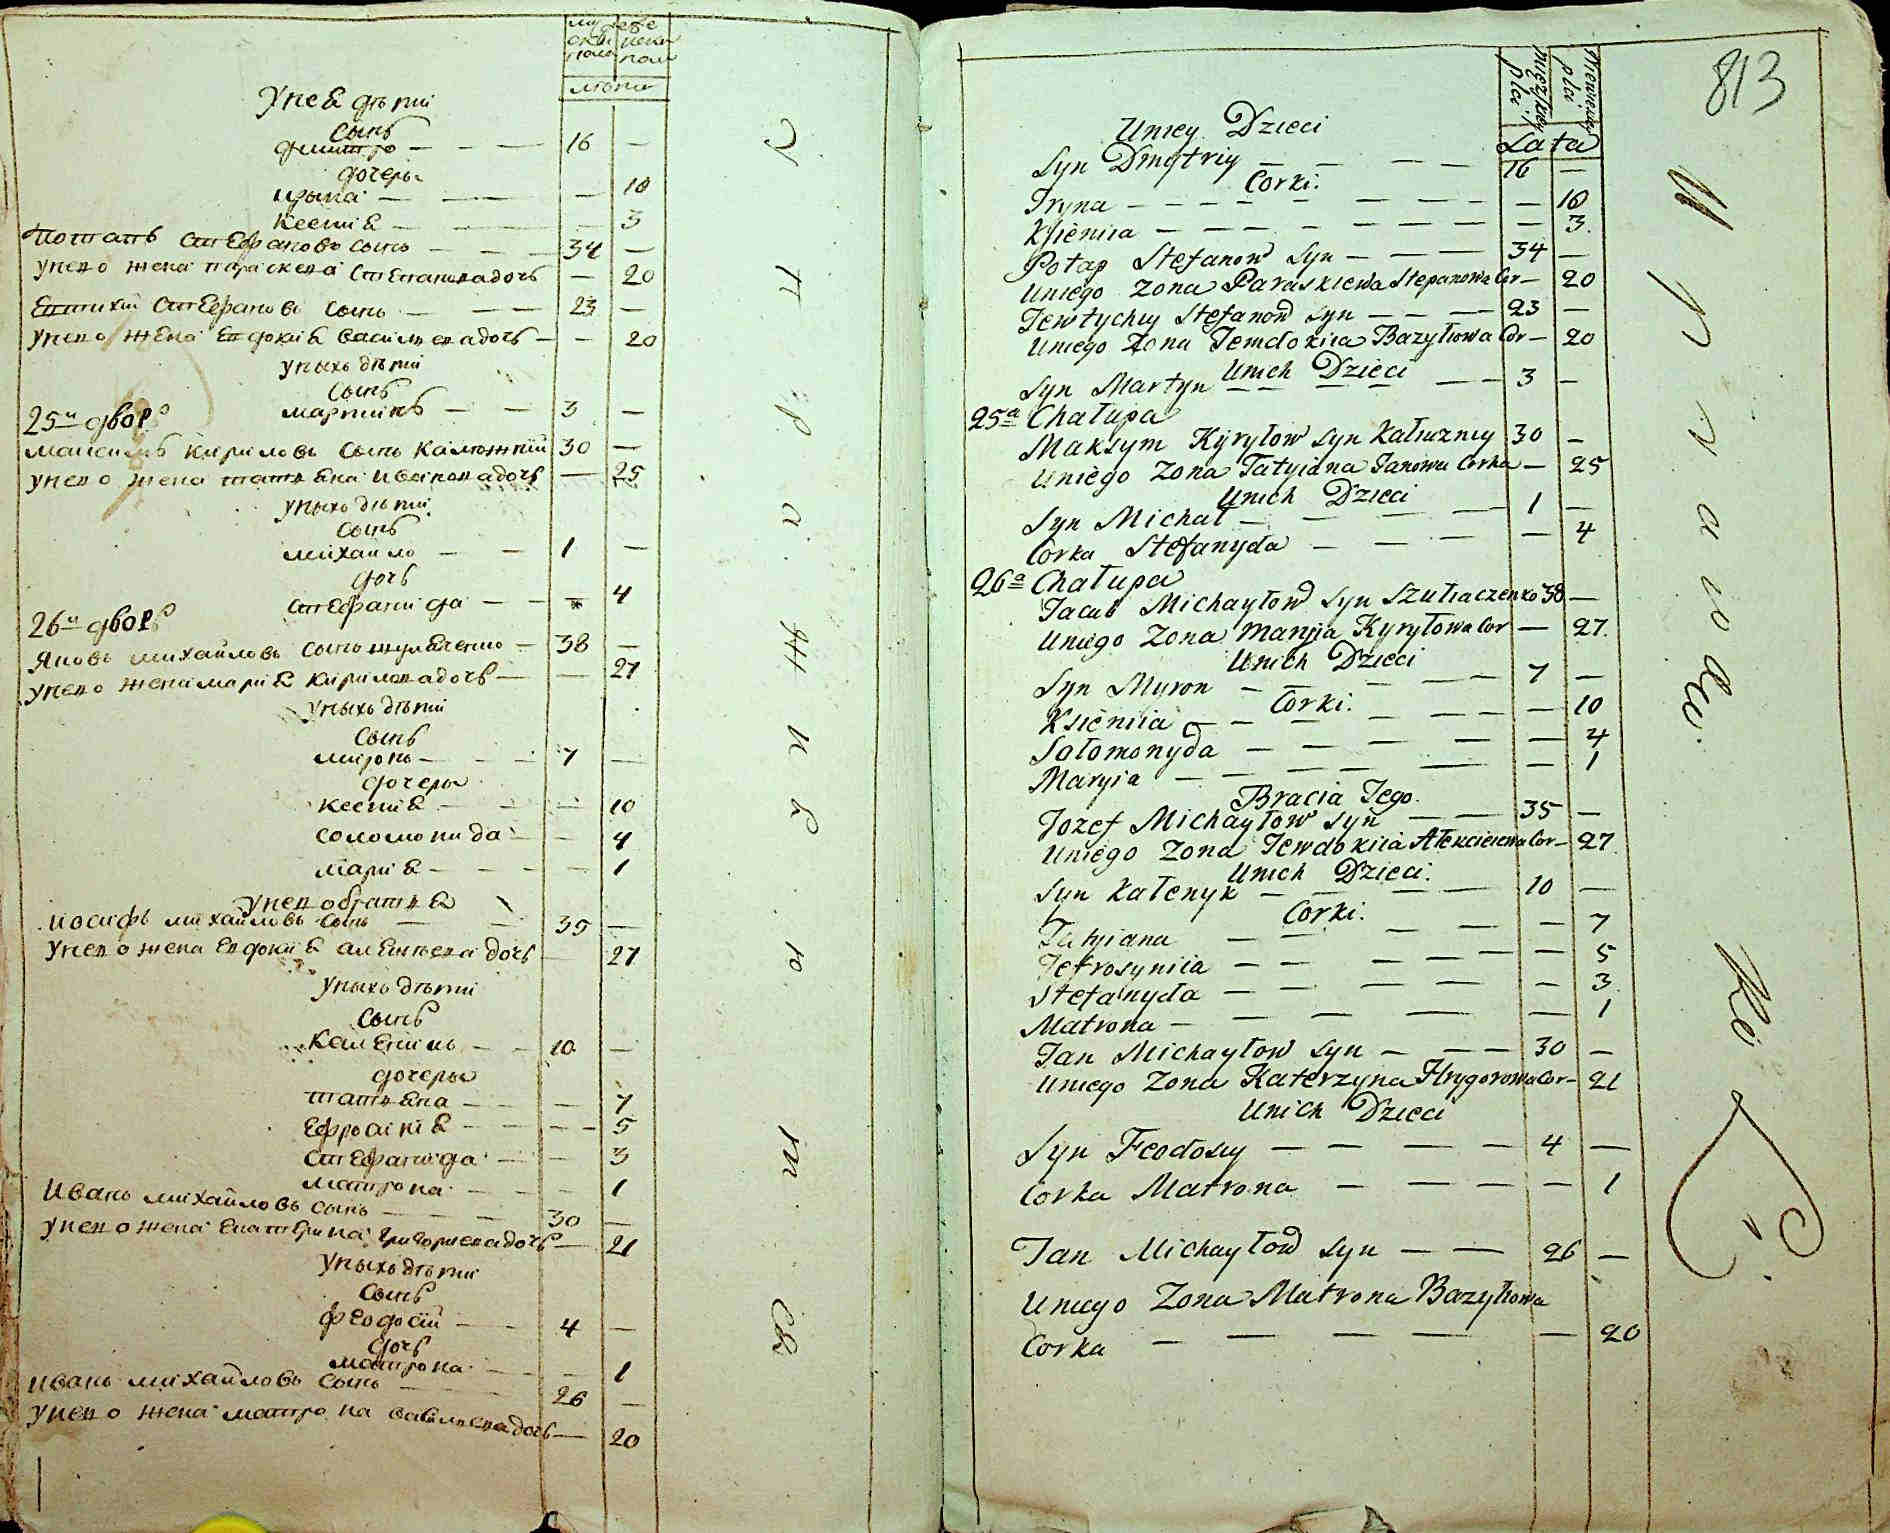 мужеска пола
женска пола
лѣта
Унеѣ дѣти
Сынъ
Дмитро — — — 16 —
дочеры
Ирына — — — — 10
Ксения — — — 3
Потапъ Стефановъ сынъ — — 34 —
Унего жена Параскева Степановадочь — 20
Евтихий Стефановъ сынъ — — 23 —
Унего жена Евдокия Василевадочь — — 20
Унихъ дѣти
Сынъ
Мартинъ — — 3 —
25й дворъ
Максимъ Кириловъ сынъ Калюжний 30 —
Унего жена Татияна Ивановадочь — 25
Унихъ дѣти
Сынъ
Михайло — — 1 —
дочь
Стефанида — — — 4
26й дворъ
Яковъ Михайловъ сынъ Шуляченко — 38 —
Унего жена Мария Кириловадочь — — 27
Унихъ дѣти
Сынъ
Миронъ — — 7 —
дочеры
Ксения — — — 10
Соломонида — — 4
Мария — — — — 1
Унего братия
Иосифъ Михайловъ сынъ — — 35 —
Унего жена Евдокия Алексѣева дочь — 27
Унихъ дѣти
Сынъ
Калѣникъ — — 10 —
дочеры
Татияна — — — 7
Ефросиния — — — — 5
Стефанида — — 3
Матрона — — — 1
Иванъ Михайловъ сынъ — — — 30 —
Унего жена Екатерина Григориевадочь — 21
Унихъ дѣти
Сынъ
Феодосий — — 4 —
дочь
Матрона — — 1
Иванъ Михайловъ сынъ — — 26 —
Унего жена Матрона Василевадочь — 20
813
Męzkiey płci
Niewieskiey płci
Lata
Uniey Dzieci
Syn Dmytriy — — — — 16 —
Corki:
Iryna — — — — — — — 10
Ksieniia — — — — — — — 3.
Potap Stefanow syn — — — 34 —
Uniego Zona Paraskiewa Stepanowa Cor — 20
Jewtychiy Stefanow syn — — — 23 —
Uniego Zona Jewdokiia Bazyliowa Cor — 20
Unich Dzieci
Syn Martyn — — — — — 3 —
25a Chałupa
Maksym Kyryłow syn Kałiuzniy 30 —
Uniego Zona Tatyiana Janowa Corka — 25
Unich Dzieci
Syn Michał — — — — 1 —
Corka Stefanyda — — — — 4
26a Chałupa
Jacub Michayłow syn Szuliaczenko 38 —
Uniego Zona Maryia Kyryłowa Cor — 27.
Unich Dzieci
Syn Myron — — — — 7 —
Corki:
Ksieniia — — — — — — 10
Sołomonyda — — — — — — 4
Maryia — — — — — — 1
Bracia Jego.
Jozef Michayłow syn — — 35 —
Uniego Zona Jewdokiia Ałekciejewa Cor — 27.
Unich Dzieci.
Syn Kałenyk — — — — 10 —
Corki.
Tatyiana — — — — — 7
Jefrosyniia — — — — — — 5
Stefanyda — — — — — — 3.
Matrona — — — — — — 1
Jan Michayłow syn — — — 30 —
Uniego Zona Katerzyna Hrygorowa Cor — 21
Unich Dzieci
Syn Feodosiy — — — — — 4 —
Corka Matrona — — — — — 1
Jan Michayłow syn — — 26 —
Uniego Zona Matrona Bazyliowa
Corka — — — — — — 20